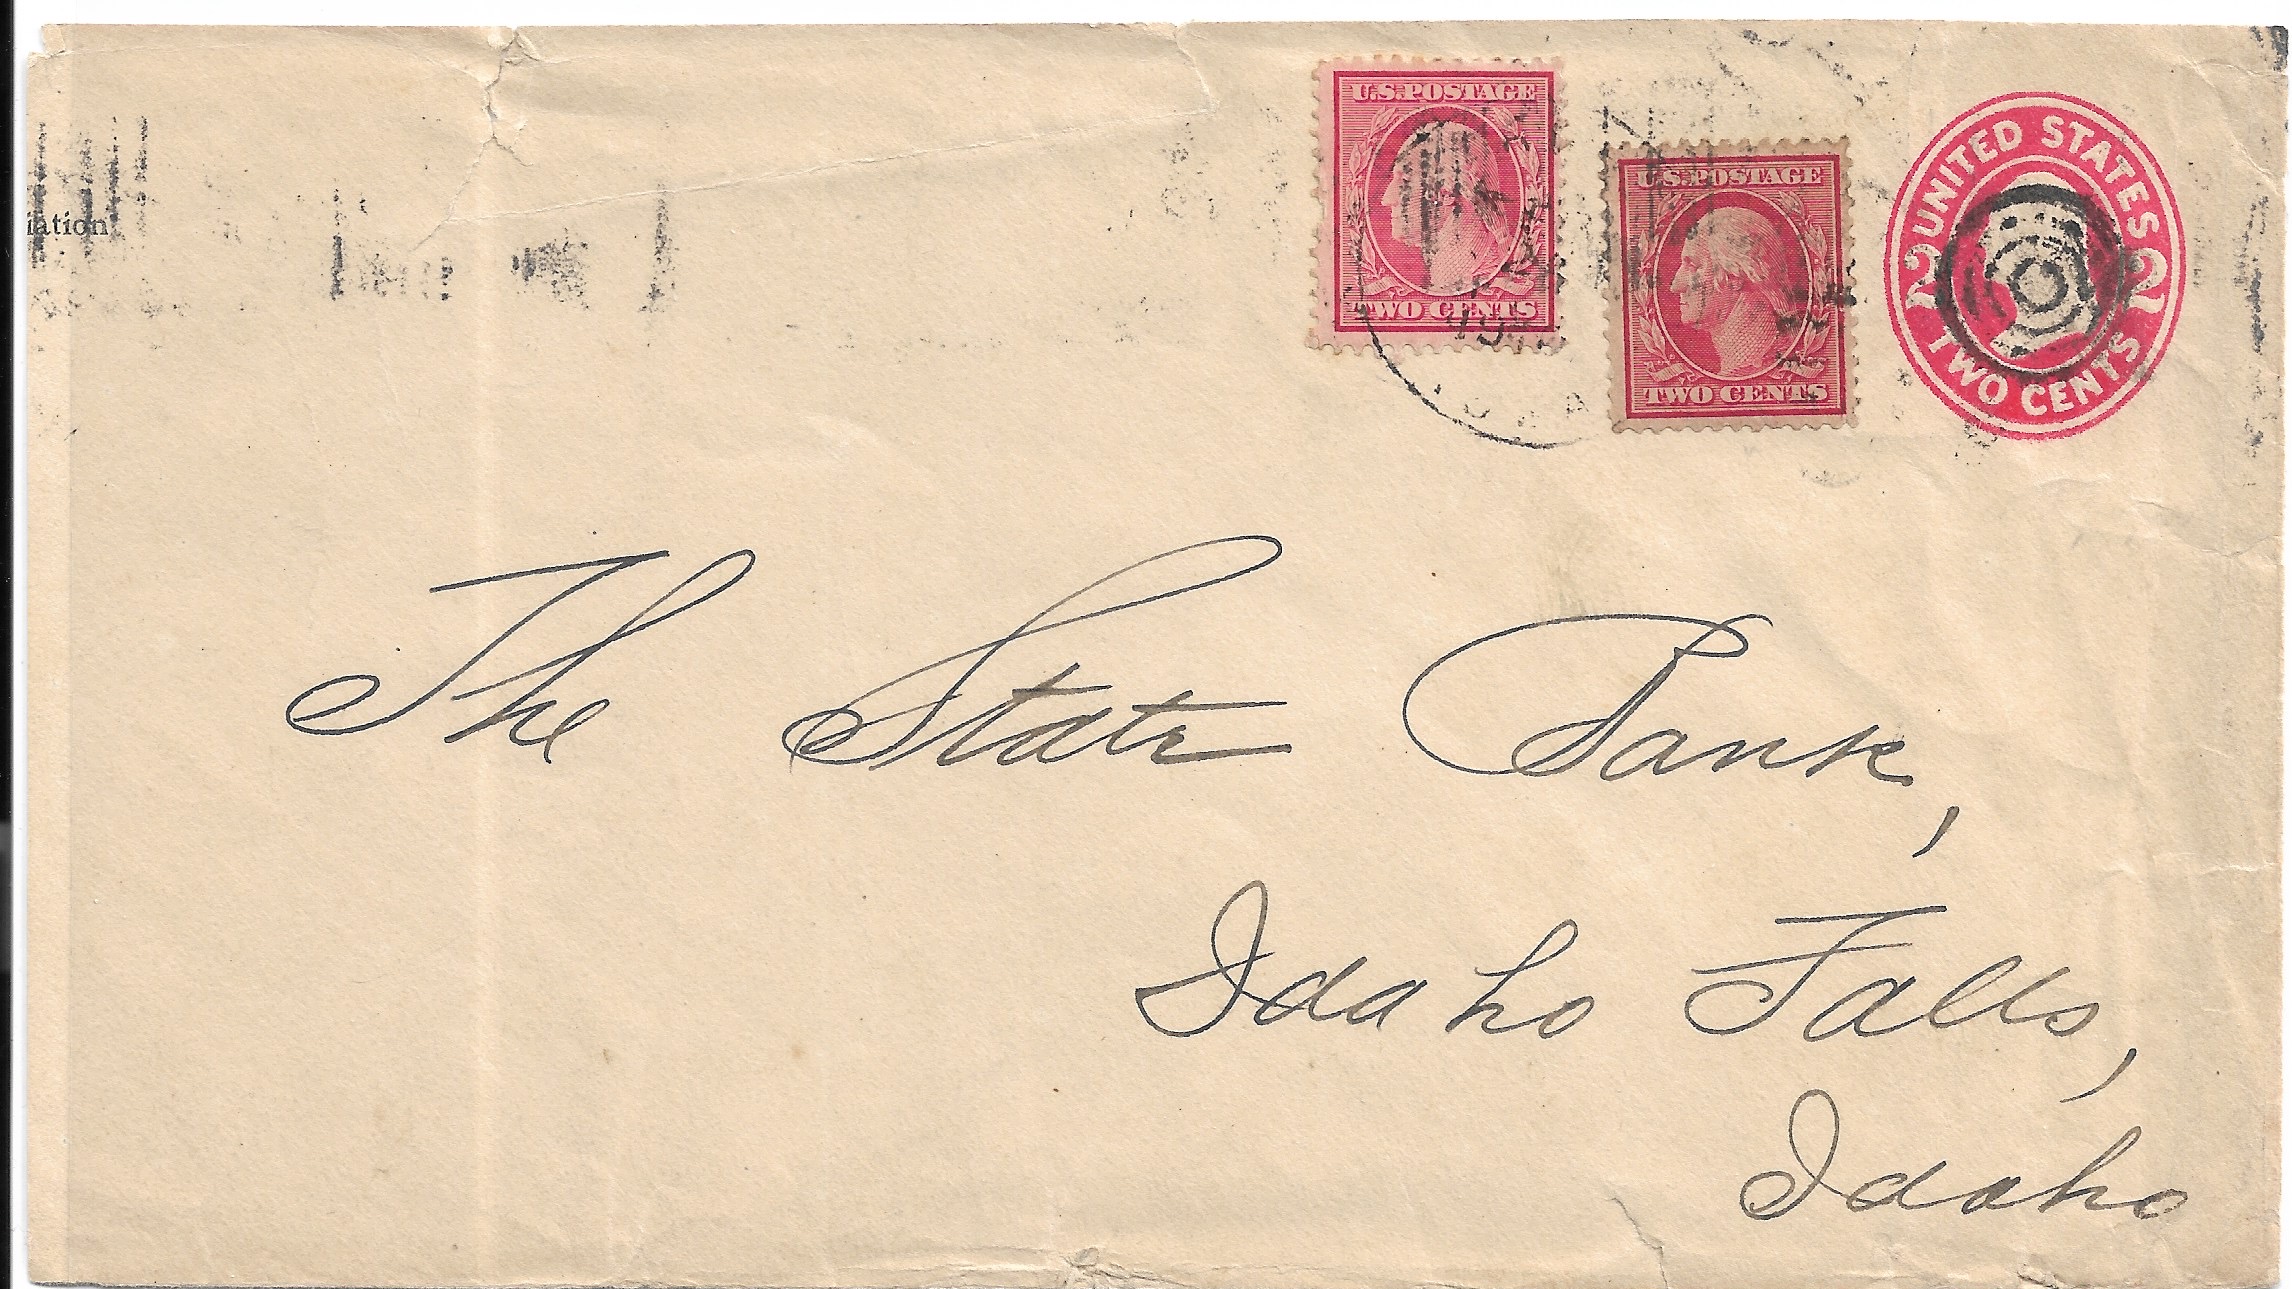 iation
U.S. POSTAGE
TWO CENTS
U.S. POSTAGE
TWO CENTS
UNITED STATES
2 2
TWO CENTS
IOWA
The State Bank,
Idaho Falls,
Idaho